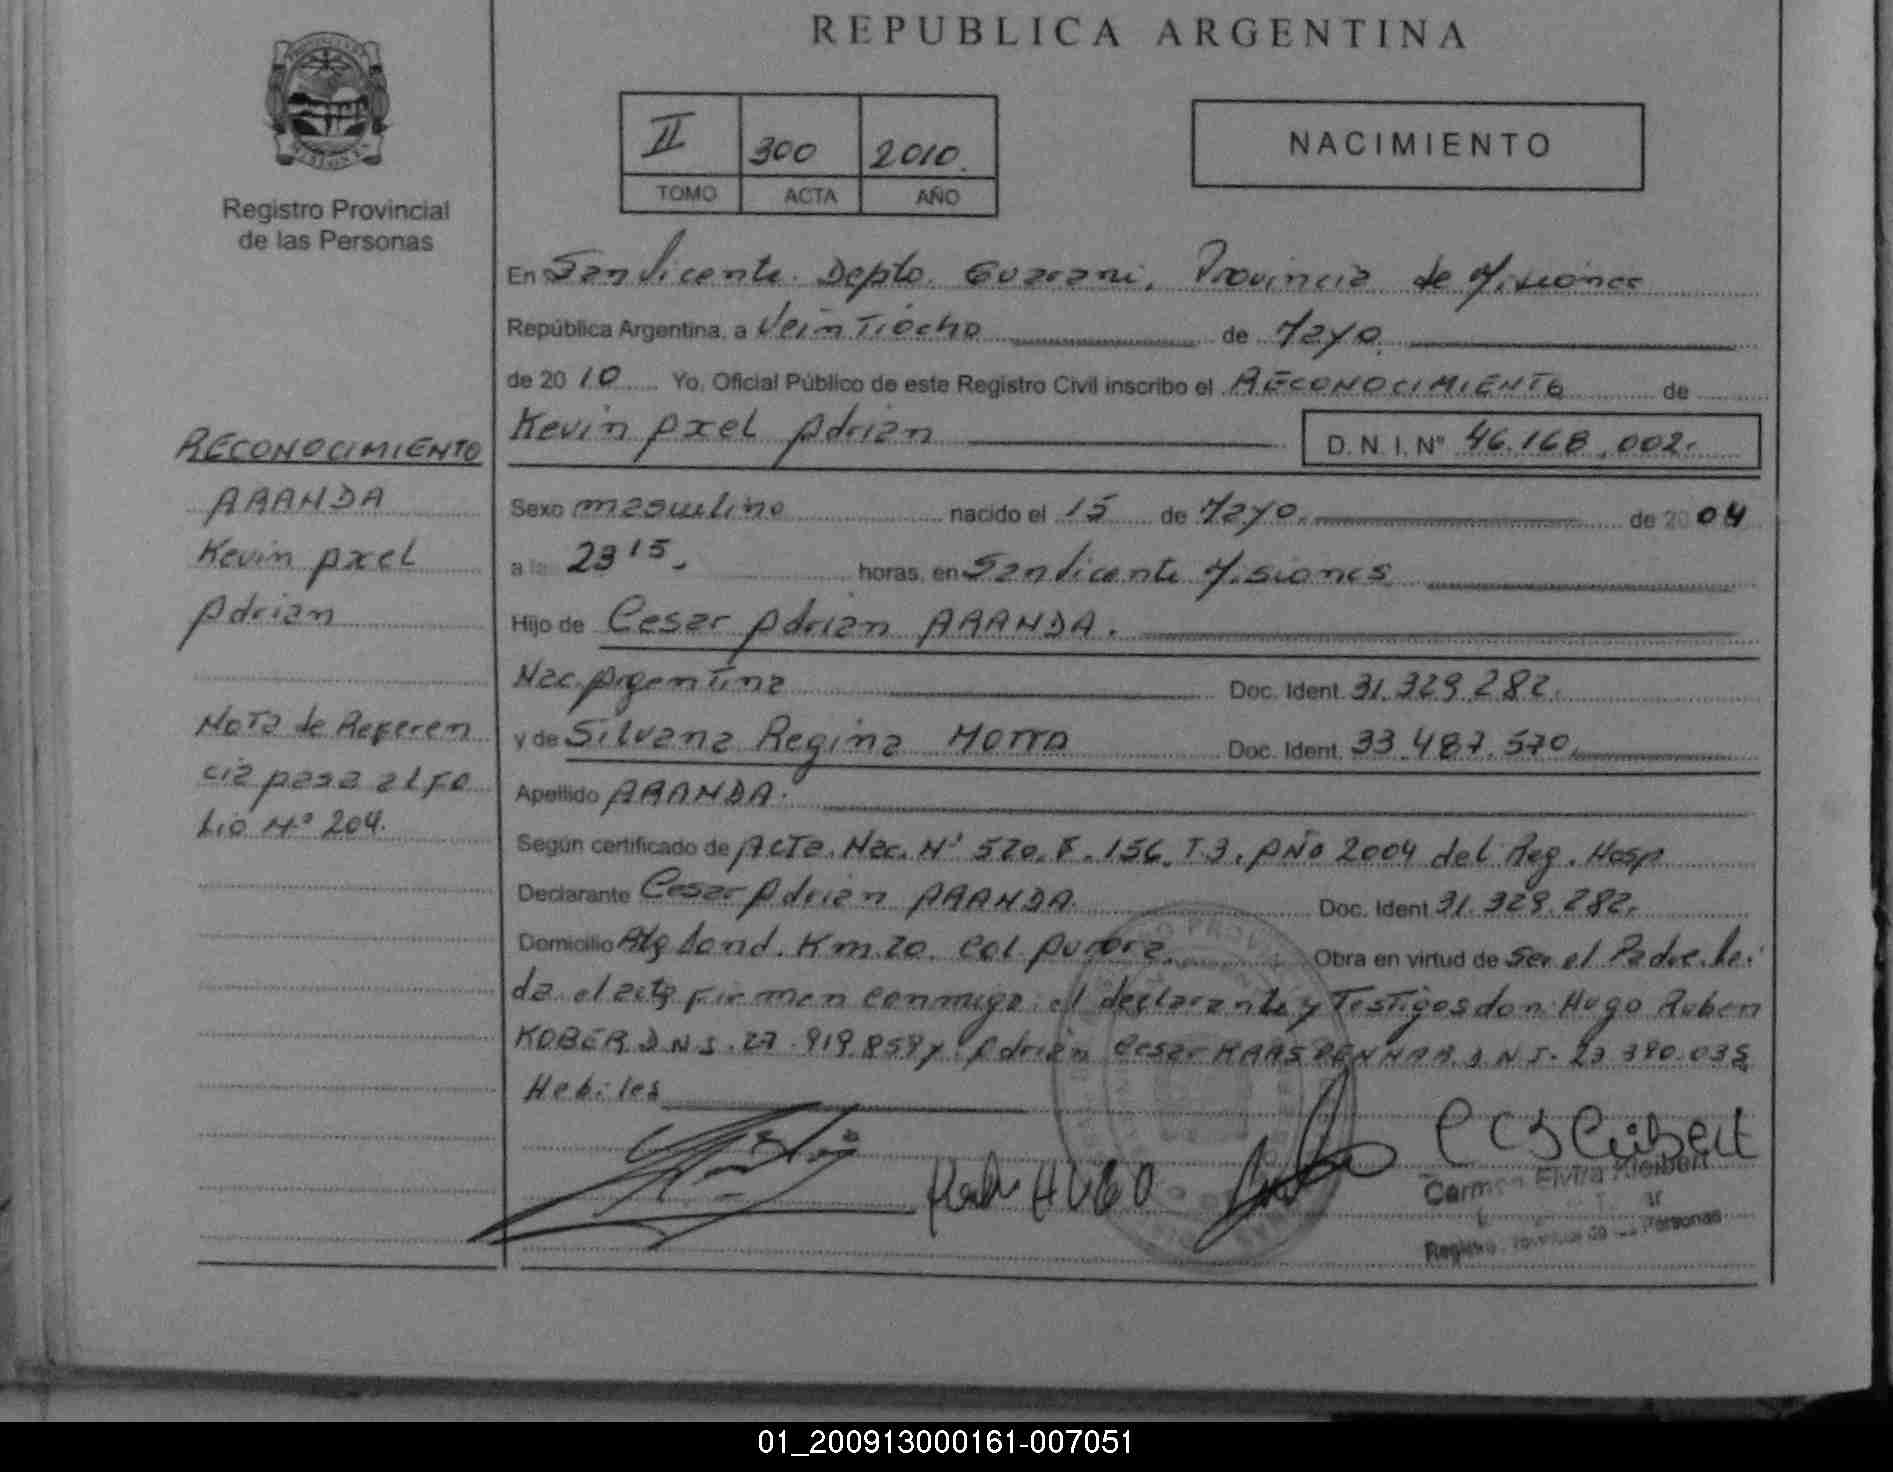 REPUBLICA ARGENTINA
II 300 2010.
TOMO ACTA AÑO
NACIMIENTO
Registro Provincial
de las Personas
RECONOCIMIENTO
ARANDA
Kevin Axel
Adrian
Nota de Referen
cia pasa al fo
lio Nº 204.
En San Vicente. Depto. Guarani, Provincia de Misiones
República Argentina, a Veintiocho de Mayo.
de 2010 Yo, Oficial Público de este Registro Civil inscribo el RECONOCIMIENTO de
Kevin Axel Adrian D. N. I. Nº 46.168.002.
Sexo masculino nacido el 15 de Mayo. de 2004
a la 23 15. horas, en San Vicente Misiones
Hijo de Cesar Adrian ARANDA.
Nac. Argentina Doc. Ident. 31.329.282.
y de Silvana Regina MOTTA Doc. Ident. 33.487.570.
Apellido ARANDA.
Según certificado de Acta. Nac. Nº 520. F. 156. T.3. AÑO 2004 del Reg. Hosp
Declarante Cesar Adrian ARANDA Doc. Ident 31.329.282.
Domicilio Km.20. Col. Aurora. Obra en virtud de Ser el Padre. Lei
da el acta firman conmigo el declarante y Testigos don: Hugo Ruben
KOBER D.N.I. 27.919.859 y Adrian Cesar D.N.I. 23.390.035
Habiles
HUGO
Carmen Elvira Kleibert
Registro Provincial de las Personas
01_200913000161-007051